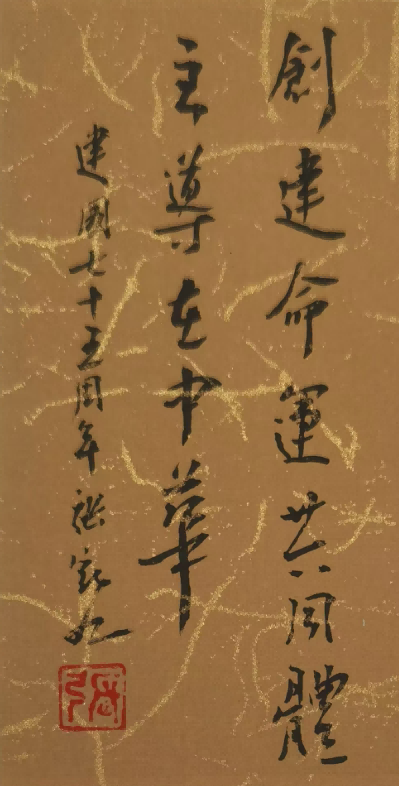 創建命運共同體
主導在中華
建國七十五周年 張家
張